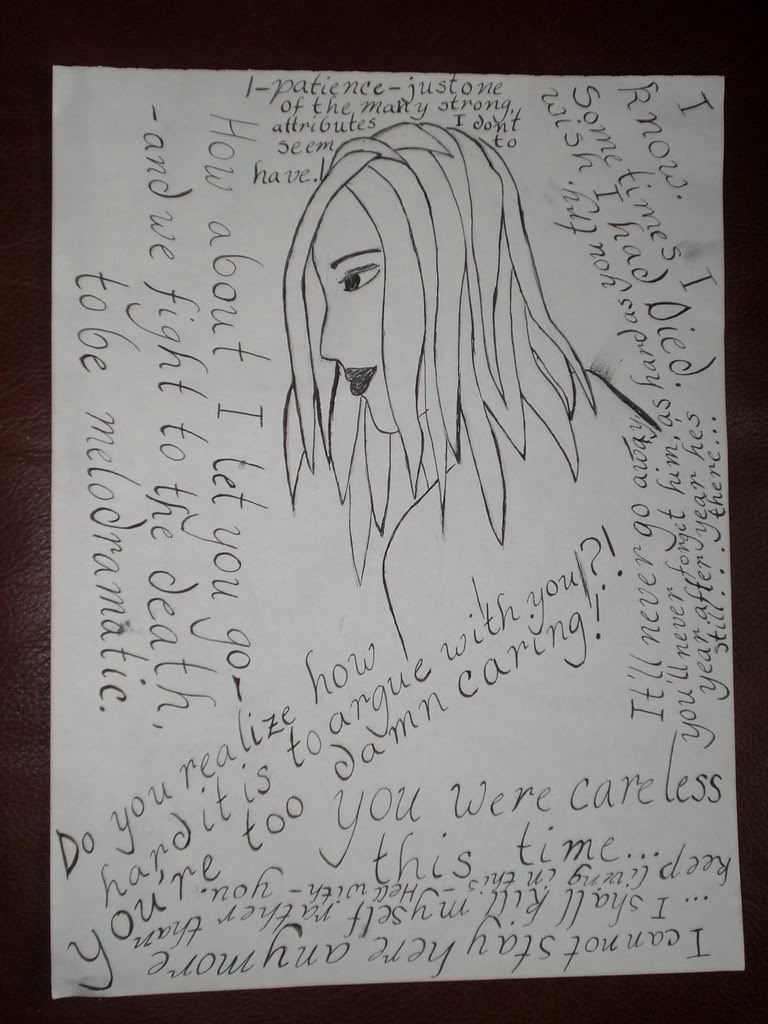 1-patience-just one
of the many strong,
attributes I dont
seem to
have.!
How about I let you go-
-and we fight to the death,
to be melodramatic.
I Died.
I know.
Sometimes I
wish I had
It'll never go away
you'll never forget him, as hard as you try.
year after year hes
still.... there...
Do you realize how
hard it is to argue with you?!
You're too damn caring!
you were careless
this time...
I cannot stay here anymore
... I shall kill myself rather than
keep living in this -Hell with- you.